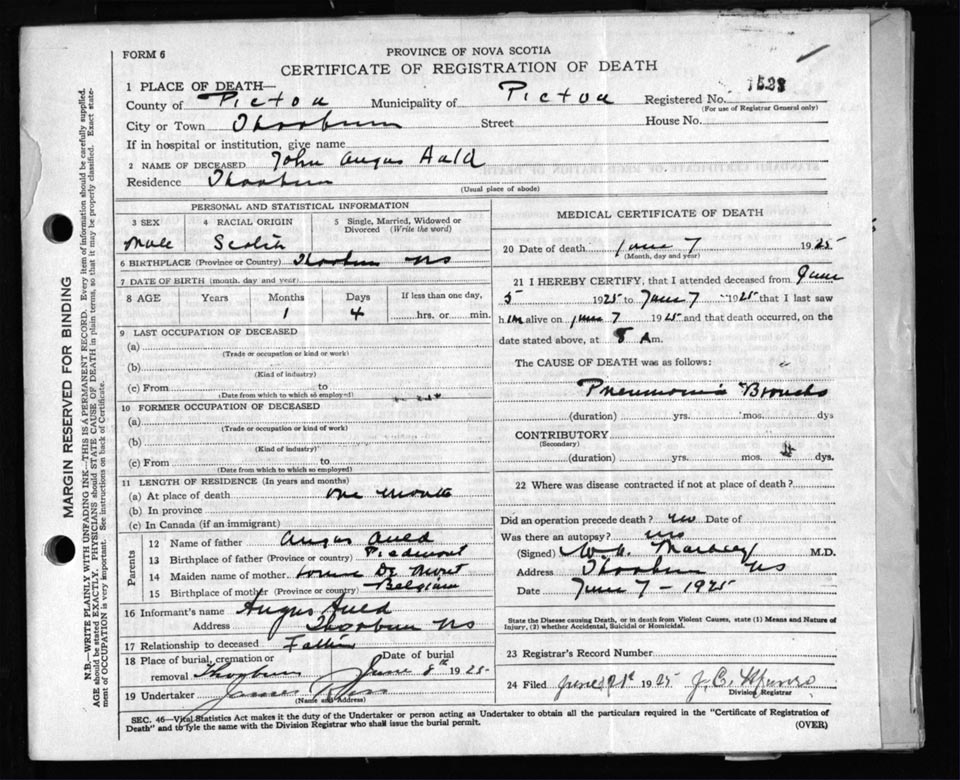 FORM 6
PROVINCE OF NOVA SCOTIA
CERTIFICATE OF REGISTRATION OF DEATH
1 PLACE OF DEATH—
County of Pictou Municipality of Pictou Registered No. 1523
(For use of Registrar General only)
City or Town Thorburn Street House No.
If in hospital or institution, give name
2 NAME OF DECEASED John Angus Auld
Residence Thorburn
(Usual place of abode)
PERSONAL AND STATISTICAL INFORMATION
3 SEX 4 RACIAL ORIGIN 5 Single, Married, Widowed or Divorced (Write the word)
Male Scotch
6 BIRTHPLACE (Province or Country) Thorburn NS
7 DATE OF BIRTH (month, day and year)
8 AGE Years Months Days If less than one day,
1 4 hrs. or min.
9 LAST OCCUPATION OF DECEASED
(a)
(Trade or occupation or kind or work)
(b)
(Kind of industry)
(c) From to
(Date from which to which so employed)
10 FORMER OCCUPATION OF DECEASED
(a)
(Trade or occupation or kind of work)
(b)
(Kind of industry)
(c) From to
(Date from which to which so employed)
11 LENGTH OF RESIDENCE (In years and months)
(a) At place of death one month
(b) In province
(c) In Canada (if an immigrant)
Parents
12 Name of father Angus Auld
13 Birthplace of father (Province or country) Piedmont
14 Maiden name of mother De Mont
15 Birthplace of mother (Province or country) Belgium
16 Informant's name Angus Auld
Address Thorburn NS
17 Relationship to deceased Father
18 Place of burial, cremation or removal Thorburn Date of burial June 8th 1925
19 Undertaker James
(Name and Address)
MEDICAL CERTIFICATE OF DEATH
20 Date of death June 7 1925
(Month, day and year)
21 I HEREBY CERTIFY, that I attended deceased from June
5 1925 to June 7 1925 that I last saw
him alive on June 7 1925 and that death occurred, on the
date stated above, at 8 Am.
The CAUSE OF DEATH was as follows:
Pneumonia Broncho
(duration) yrs. mos. dys
CONTRIBUTORY
(Secondary)
(duration) yrs. mos. dys.
22 Where was disease contracted if not at place of death?
Did an operation precede death? no Date of
Was there an autopsy? no
(Signed) M.D.
Address Thorburn NS
Date June 7 - 1925
State the Disease causing Death, or in death from Violent Causes, state (1) Means and Nature of
Injury, (2) whether Accidental, Suicidal or Homicidal.
23 Registrar's Record Number
24 Filed June 1925 J. C.
Division Registrar
SEC. 46—Vital Statistics Act makes it the duty of the Undertaker or person acting as Undertaker to obtain all the particulars required in the "Certificate of Registration of
Death" and to fyle the same with the Division Registrar who shall issue the burial permit.
(OVER)
MARGIN RESERVED FOR BINDING
N.B.—WRITE PLAINLY WITH UNFADING INK—THIS IS A PERMANENT RECORD. Every item of information should be carefully supplied.
AGE should be stated EXACTLY. PHYSICIANS should STATE CAUSE OF DEATH in plain terms, so that it may be properly classified. Exact statement
of OCCUPATION is very important. See instructions on back of Certificate.